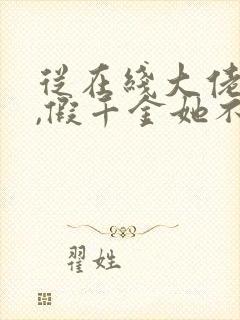 从在綫大佬
,假千金她不
翟姓